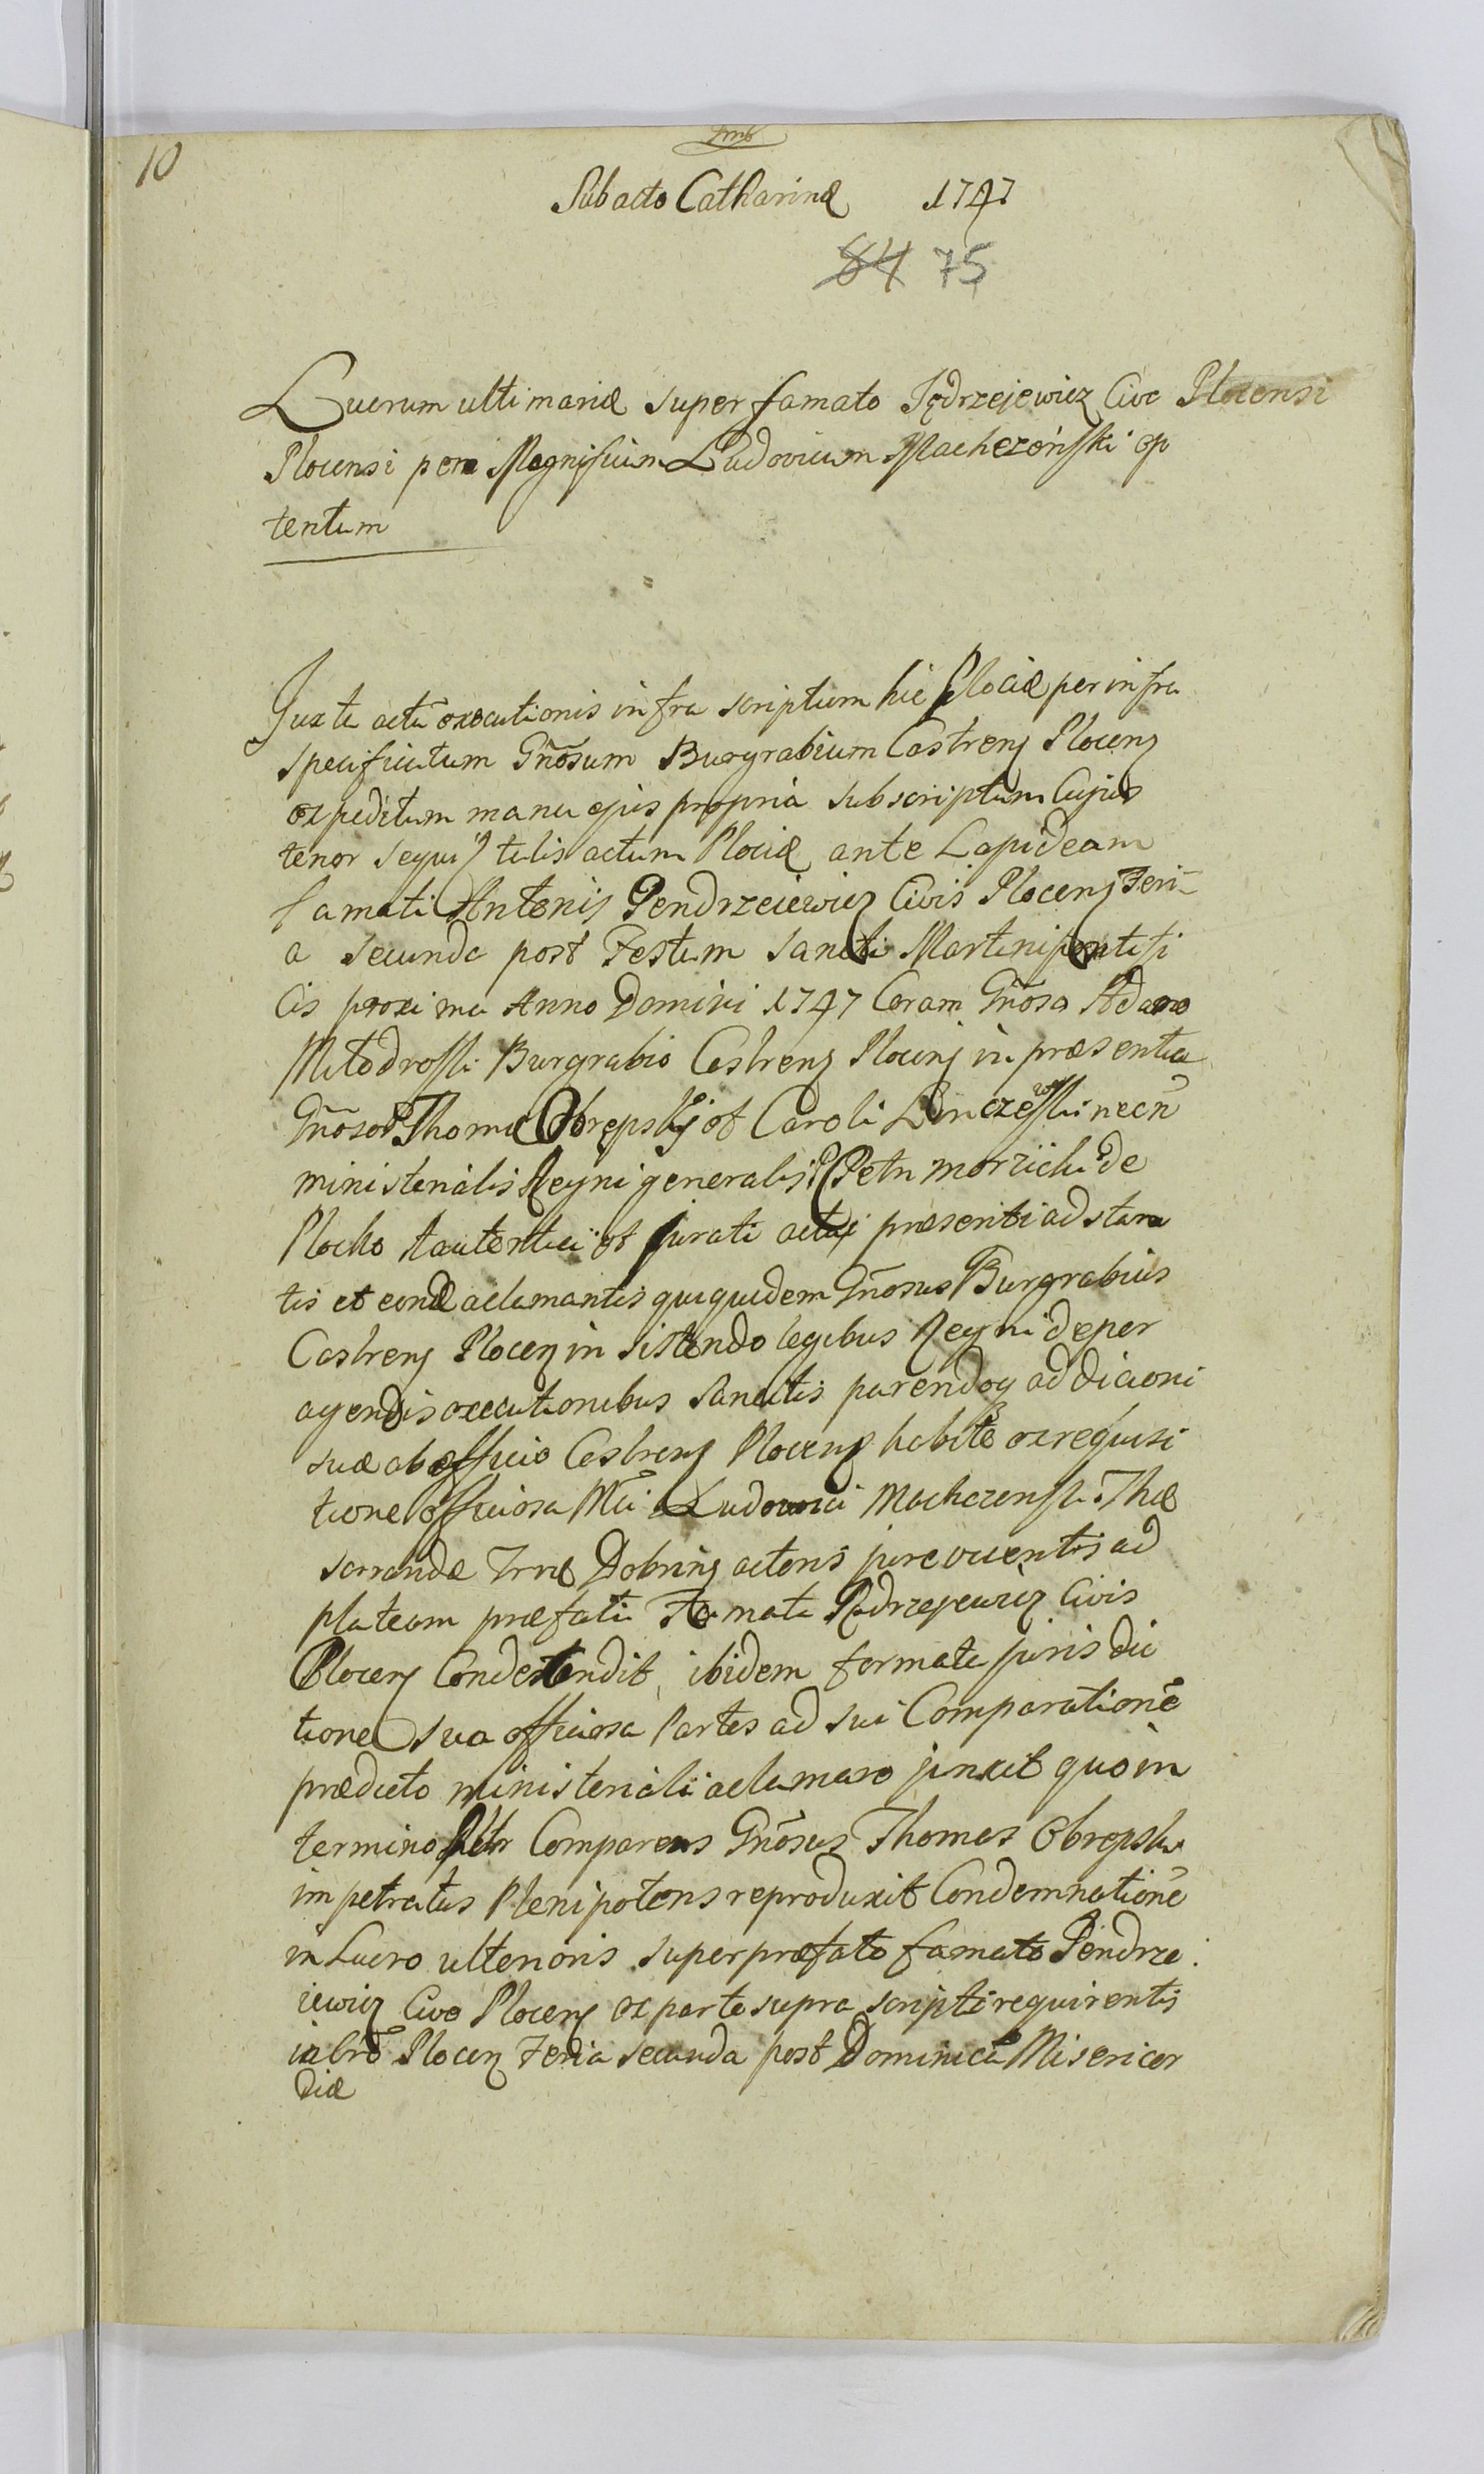 10
Sub acto Catharinæ 1747
84 75
Lucrum ultimariæ super famato Jędrzejewicz Cive Plocensi
Plocensi per Magnificum Ludovicum Macherzoński op
tentum
Juxta actũ executionis infra scriptum hic Plociæ per infra
specificatum Gñosum Burgrabium Castrens Plocens
expeditum manu ejus propria subscriptum Cujus
tenor sequi talis actum Plociæ ante Lapideam
famati Antonij Pendrzeiewicz Civis Plocens Feri
a secunda post Festum Sancti Martini pontifi
cis proxima Anno Domini 1747 Coram Gñoso Adamo
Burgrabio Castrens Plocens in præsentia
Gñosor Thomæ Obrępskj et Caroli necñ
ministerialis Regni generalis Petri de
Plocko autentici et jurati actui præsenti adstan
tis et acclamantis qui quidem Gñosus Burgrabius
Castrens Plocen in sistendo legibus Regni de per
agendis executionibus sancitis parendoq ad dicioni
suæ ab officio Castrens Plocens ex requisi
tione officiosa Mci Ludovici Macherzonski The
saurariidæ Trræ Dobrins actoris jure vicentis ad
plateam præfati Famati Pędrzejewicz Civis
Plocens Condescendit, ibidem formata juris dic
tione sua officiosa Partes ad sui Comparationẽ
prædicto ministeriali aclamare jinxit quo in
termino Comparens Gñosus Thomas Obrępski
impetratus Plenipotens reproduxit Condemnationẽ
in Lucro ulterioris super præfato famato Pendrze
iewicz Cive Plocens ex parte supra scripti requirentis
Plocen Feria secunda post Dominicã Misericor
diæ